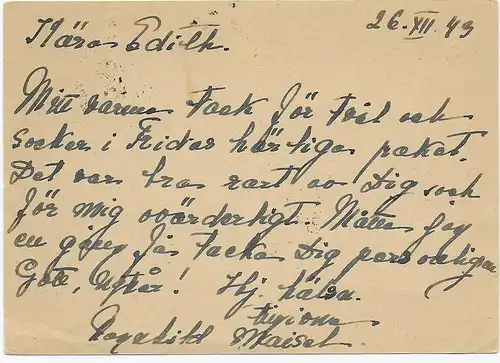 26. XII. 43
Kära Edith.
Mitt varma tack för tvål och
socker i Fridas härliga paket.
Det var bra rart av Dig och
för mig ovärderligt. Måtte jag
en gång få tacka Dig personligen
Gott, Nytår! Hj. hälsn.
Ragnhild Maisel